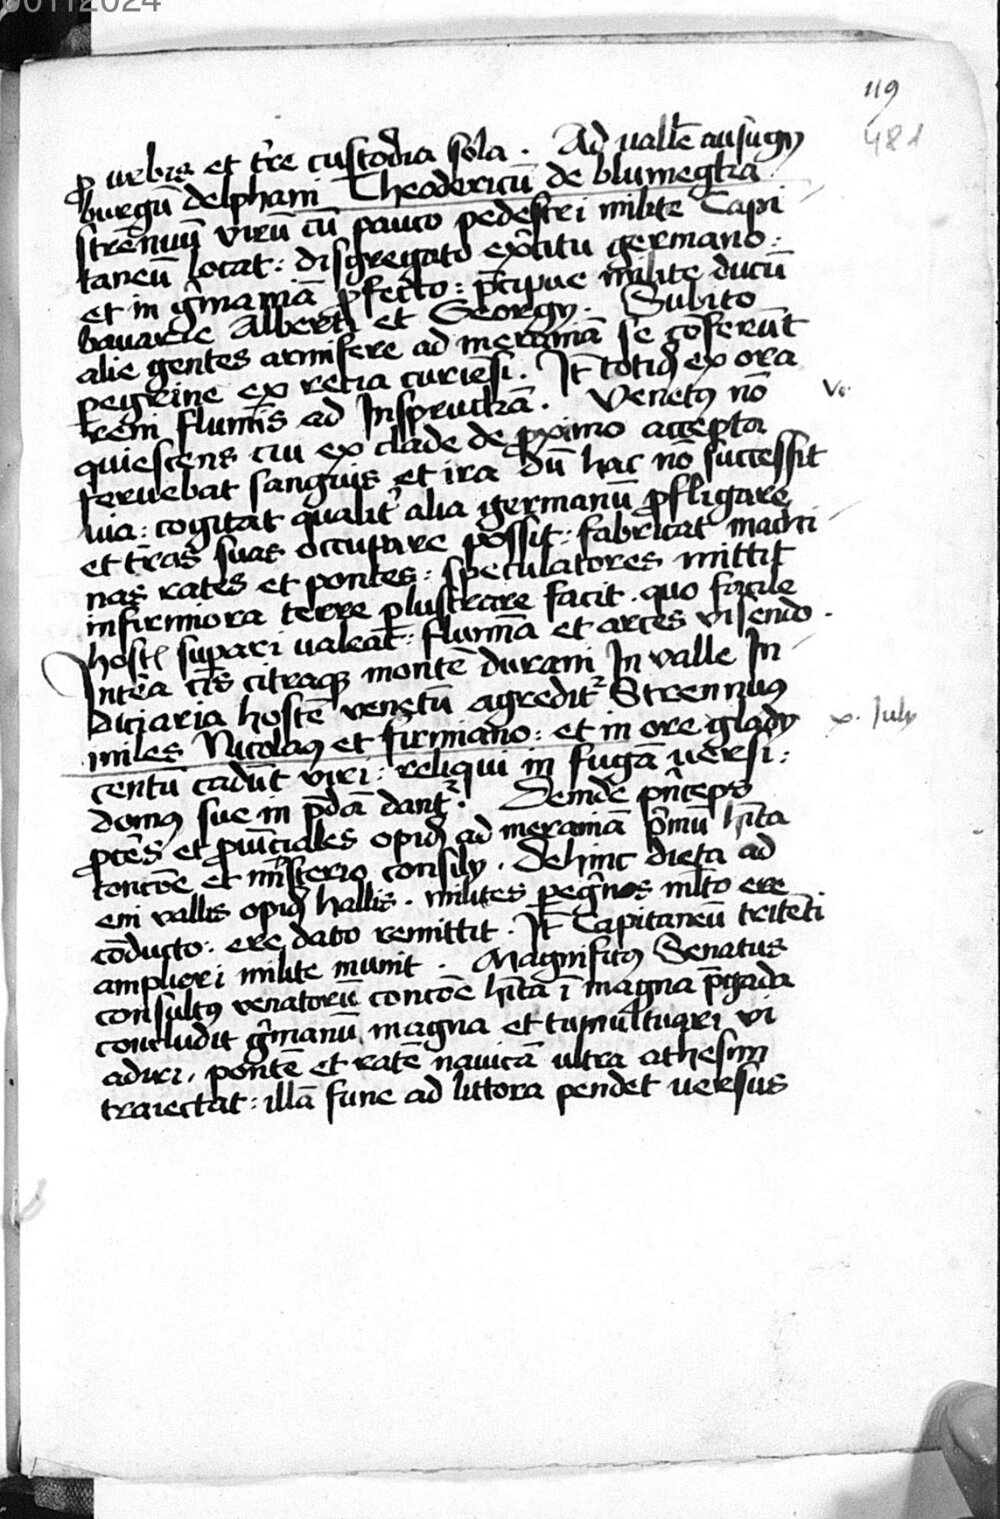 00112024
119
481
ꝑ vrbis et tr̄e custodia sola . Ad vallē ausugij
burgū delpham Theodericū de blumegka
strēnuū virū cū pauco pedestri milite Capi
taneū locat : disgregato exc̄itu germano :
et in ḡmaniā ꝓfecto : p̄cipue milite ducū
bauarie Alberti et Georgij . Subito
alie gentes armifere ad meraniā se cōferūt
peḡrine ex retia curiēsi . Jt̄ totidē ex ora
reni flumīs ad Jnspruckā . Venetꝯ nō
Ve
quiescens cui ex clade de ꝓximo accepta
feruebat sanguis et ira dū hac nō successit
via : cogitat qualit̄ alia germanū ꝓfligare
et tr̄as suas occupare possit : fabricat machi
nas rates et pontes : speculatores mittit
infirmiora terre ꝑlustrare facit . quo facile
host̄ suꝑari valeat : flumīa et arces visendo .
Jntēa cis citraqꝫ montē durani Jn valle Jn
diciaria hostē venetū agredit̄ Strennuus
miles Nicolaꝯ et firmiano : et in ore gladij
x. Julij
centū cadūt viri : reliqui in fugā versi :
domꝯ sue in p̄dā dant̄ . Deinde pn̄ceps
ꝓcēs et ꝓuīciales opid̄ ad meraniā p̄mū hīta
concōe et mīsterio consilij . dehinc dieta ad
eni vallis opid̄ hallis . milites peḡnos ml̄to ere
cōducto : ere dato remittit . Jt̄ Capitaneū tritēti
ampliori milite munit . Magnificꝯ Senatus
consultꝯ venatorū concōe hīta ī magna p̄gada
concludit ḡmanū magna et tumultuari vi
aduci . pontē et ratē nauicā ultra athesim
traiectat : illā fune ad littora pendet versus